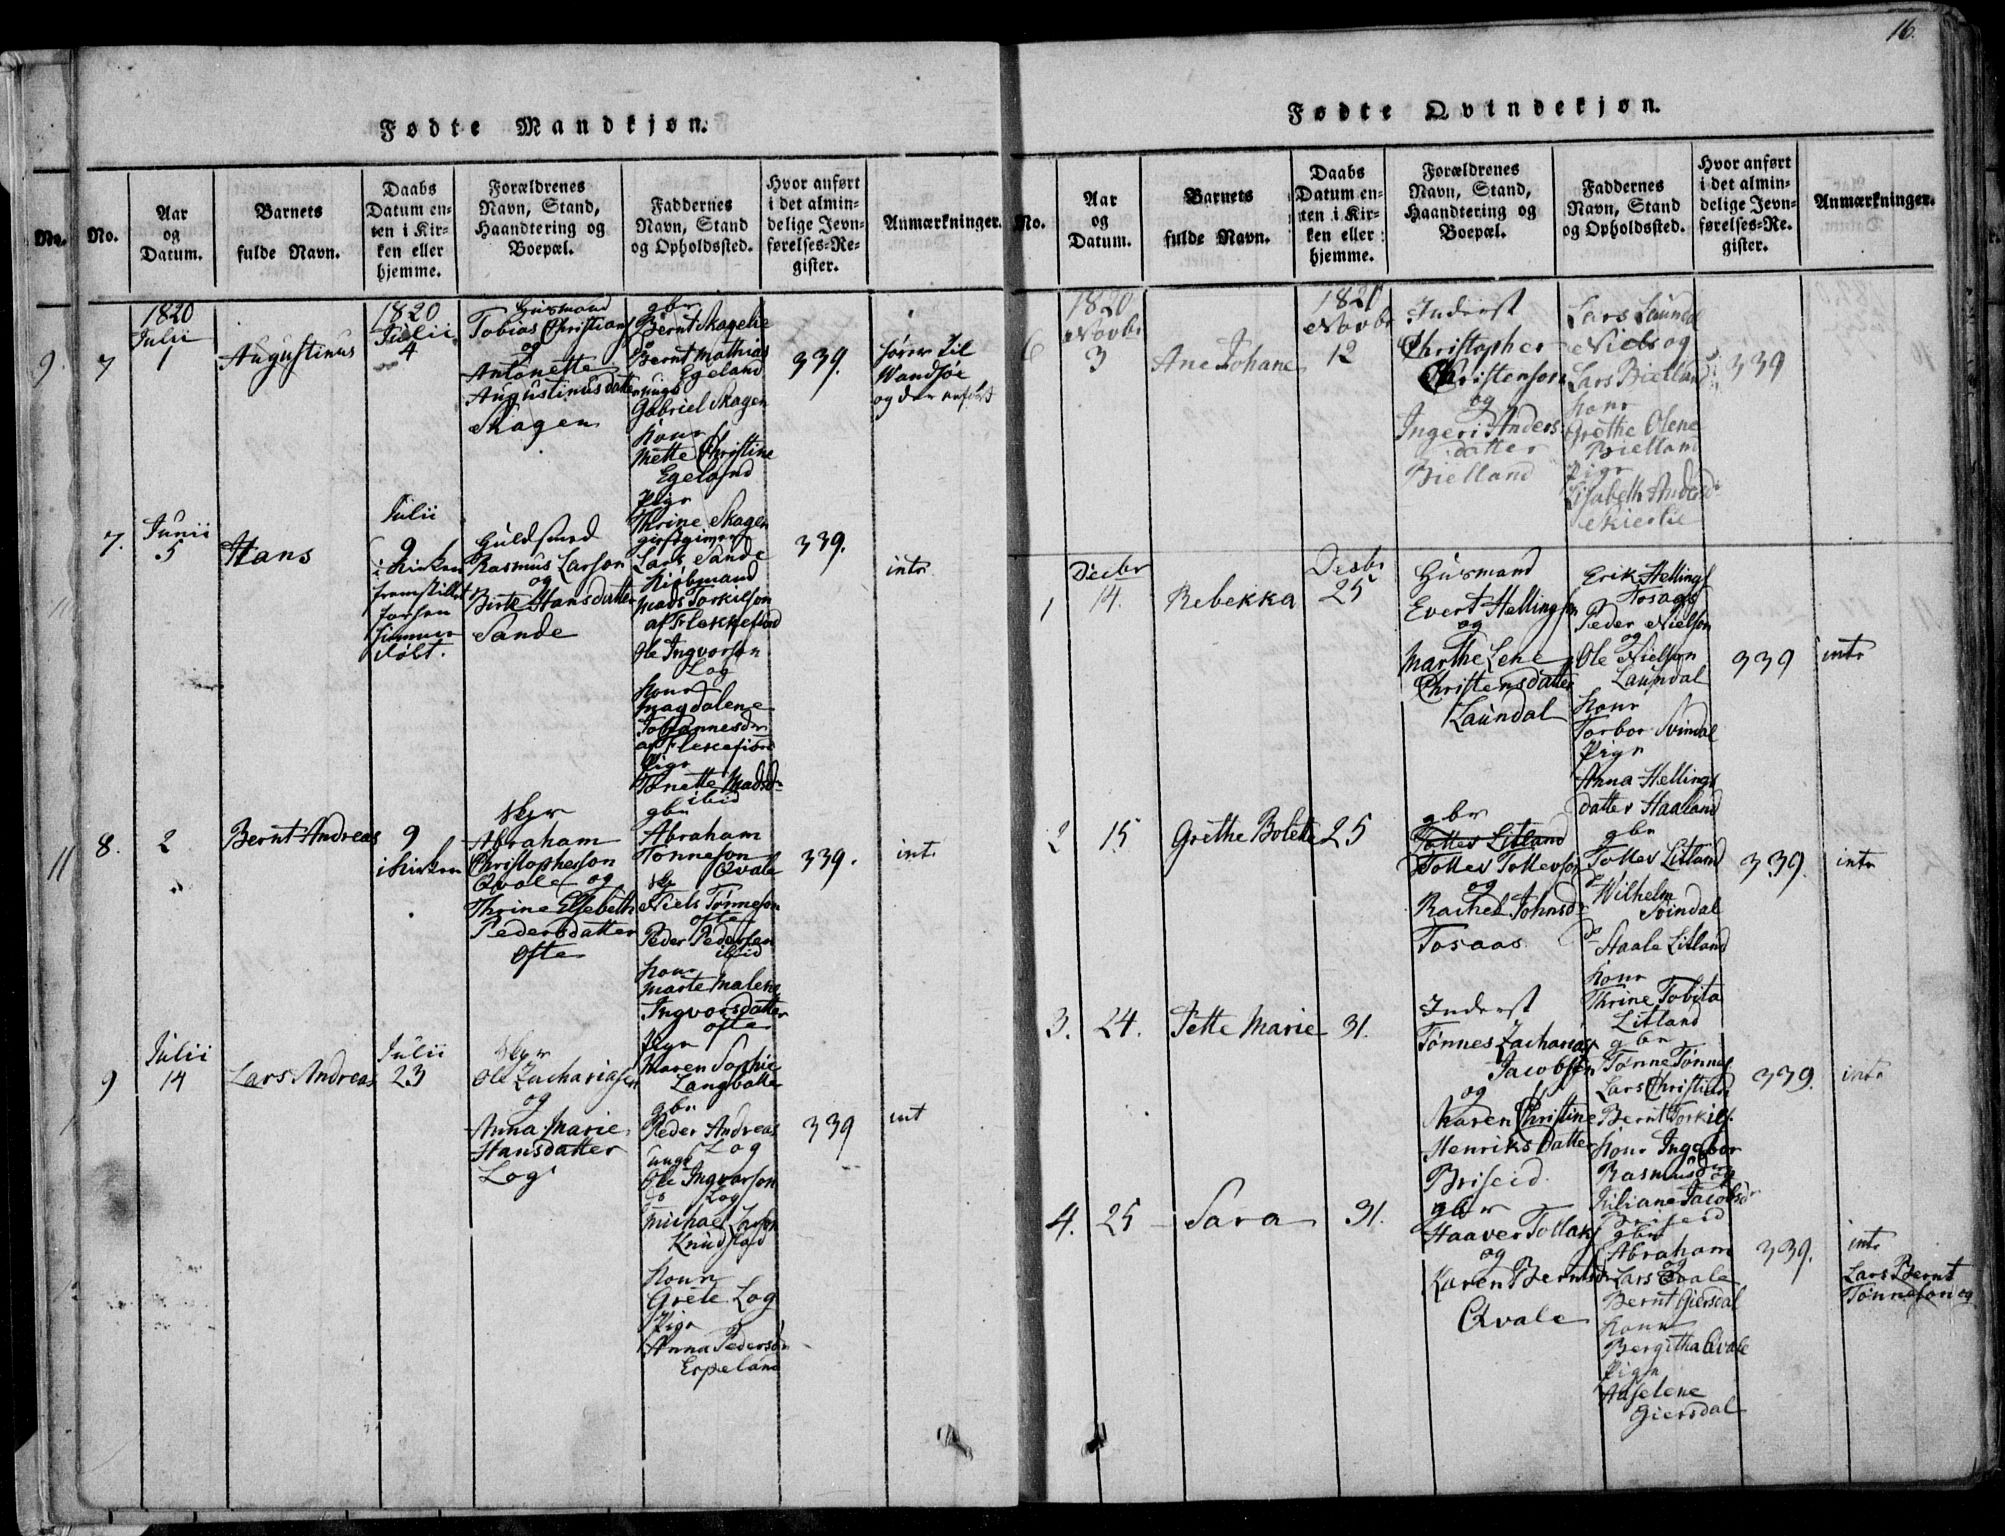 16.
Fødte Mandkjøn.
No.
No.
Aar
og
Datum.
Barnets
fulde Navn.
Daabs
Datum en-
ten i Kir-
ken eller
hjemme.
Forældrenes
Navn, Stand,
Haandtering og
Boepæl.
Faddernes
Navn, Stand
og Opholdssted.
Hvor anført
i det almin-
delige Jevn-
førelses-Re-
gister.
Anmærkninger.
9
7
1820
Julii
1
Augustinus
1820
Julii
4
Husmand
Tobias Christians
og
Antonette
Augustinusdatter
Skagen
gbr
Bernt Skagelie
Bernt Mathias
Egeland
ungk
Gabriel Skagen
Kone
Mette Christine
Egeland
Pige
Thrine Skagen
339.
hører til
Wandsøe
og der anført
7.
Junii
5
Hans
Julii
9
i Kirken
fremstillet
forhen
hjemme
døbt.
Guldsmed
Rasmus Larson
og
Birte Hansdatter
Sande
giestgiver
Lars Sande
Kiøbmand
Mads Torkilson
af Flekkefiord
Ole Ingvorson
Log
Kone
Magdalene
Johannesdr
af Flekefiord
Pige
Tonette Madsdr
ibid
339.
intr
11
8.
2
Bernt Andreas
9
i Kirken
Skpr
Abraham
Christopherson
Qvale og
Thrine Elsebeth
Pedersdatter
Ofte
gbr
Abraham
Tønneson
Qvale
Niels Tønneson
Ofte
Peder Pedersen
ibid
Kone
Marte Malene
Ingvorsdatter
Ofte
Pige
Maren Sophie
Langbolle
339.
int.
9
Julii
14
Lars Andreas
Julii
23
Skpr
Ole Zachariasen
og
Anna Marie
Hansdatter
Log
gbr
Peder Andreas
Log
ungk
Ole Ingvorson
Log
Michael Larson
Knudstad
Kone
Grete Log
Pige
Anna Pedersdr
Espeland
339
int
Fødte Qvindekjøn.
No.
Aar
og
Datum.
Barnets
fulde Navn.
Daabs
Datum en-
ten i Kir-
ken eller
hjemme.
Forældrenes
Navn, Stand,
Haandtering og
Boepæl.
Faddernes
Navn, Stand
og Opholdssted.
Hvor anført
i det almin-
delige Jevn-
førelses-Re-
gister.
Anmærkninger.
6
1820
Novbr
3
Ane Johane
1820
Novbr
12
Inderst
Christopher
Christenson
og
Ingeri Anders
datter
Bielland
Lars Laundal
Niels og
Lars Bielland
Kone
Grethe Olene
Bielland
Pige
Elisabeth Andersdr
Skierlie
339
1
Decbr
14.
Rebekka
Decbr
25
Husmand
Evert Hellingson
og
Marthe Lene
Christensdatter
Laundal
Erik Hellings
Tosaas
Peder Nielson
og
Ole Nielson
Laundal
Kone
Torbor Svindal
Pige
Anna Hellings
datter Haaland
339
intr
2
15
Grethe Bolette
25
gbr
Tolles Litland
Tolles Tollevson
og
Rachel Johnsdr
Tosaas
gbr
Tolles Litland
Wilhelm
Svindal
Staale Litland
Kone
Thrine Tobita
Litland
339.
intr
3.
24.
Pette Marie
31.
Inderst
Tønnes Zacharias
Jacobsen
og
Maren Christine
Henriksdatter
Briseid
gbr
Tønne Tønnes
Lars Christian
Bernt Torkils.
Kone Ingebor
Rasmusdr og
Juliane Jacobsdr
Briseid
339.
intr
4.
25
Sara
31.
gbr
Haaver Tollaks
og
Karen Berntsdr
Qvale
gbr
Abraham
og
Lars Qvale
Bernt Giersdal
Kone
Bergitha Qvale
Pige
Adselene
Giersdal
339.
intr
Lars Bernt
Tønneson og